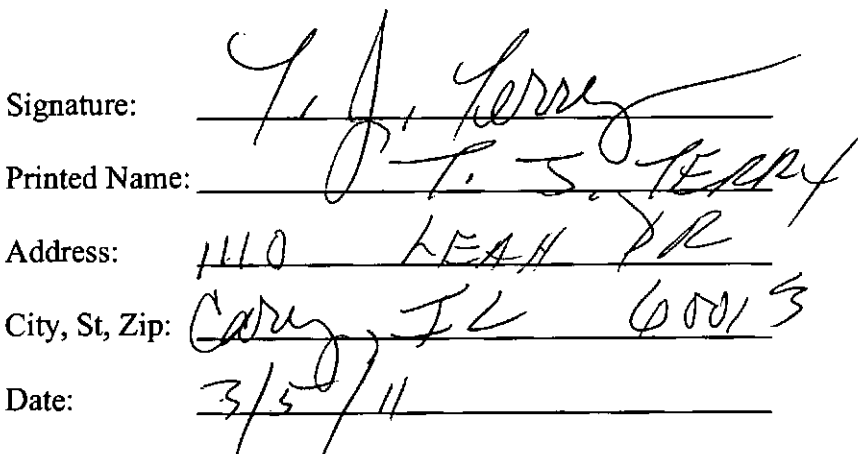 Signature: T. J. Terry
Printed Name: T. J. TERRY
Address: 1110 LEAH DR
City, St, Zip: Cary, IL 60013
Date: 3/5/11